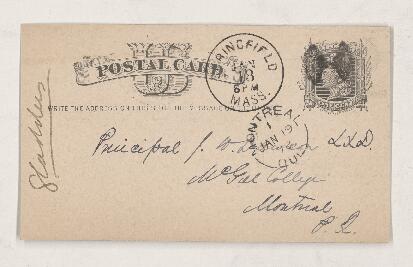 POSTAL CARD.
WRITE THE ADDRESS ON THIS SIDE - THE MESSAGE ON THE OTHER
SPRINGFIELD
JAN
18
6 PM
MASS.
MONTREAL
1
JAN 19
QUE
Principal J. W. Dawson LL.D.
McGill College
Montreal
P. Q.